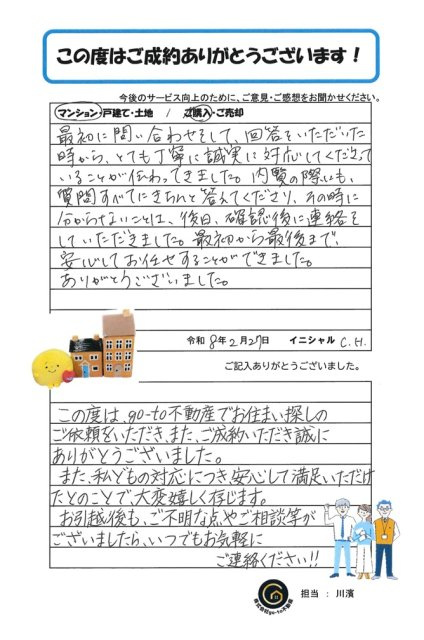 この度はご成約ありがとうございます！
今後のサービス向上のために、ご意見・ご感想をお聞かせください。
マンション・戸建て・土地 / ご購入・ご売却
最初に問い合わせをして、回答をいただいた
時から、とても丁寧に誠実に対応してくださって
いることが伝わってきました。内覧の際にも、
質問すべてにきちんと答えてくださり、その時に
分からないことは、後日、確認後に連絡を
していただきました。最初から最後まで、
安心してお任せすることができました。
ありがとうございました。
令和 8年 2月 27日 イニシャル C.H.
ご記入ありがとうございました。
この度は、go-to不動産でお住まい探しの
ご依頼をいただき、また、ご成約いただき誠に
ありがとうございました。
また、私どもの対応につき、安心して満足いただけ
たとのことで、大変嬉しく存じます。
お引越後も、ご不明な点やご相談等が
ございましたら、いつでもお気軽に
ご連絡ください!!
株式会社go-to不動産
担当 : 川濱